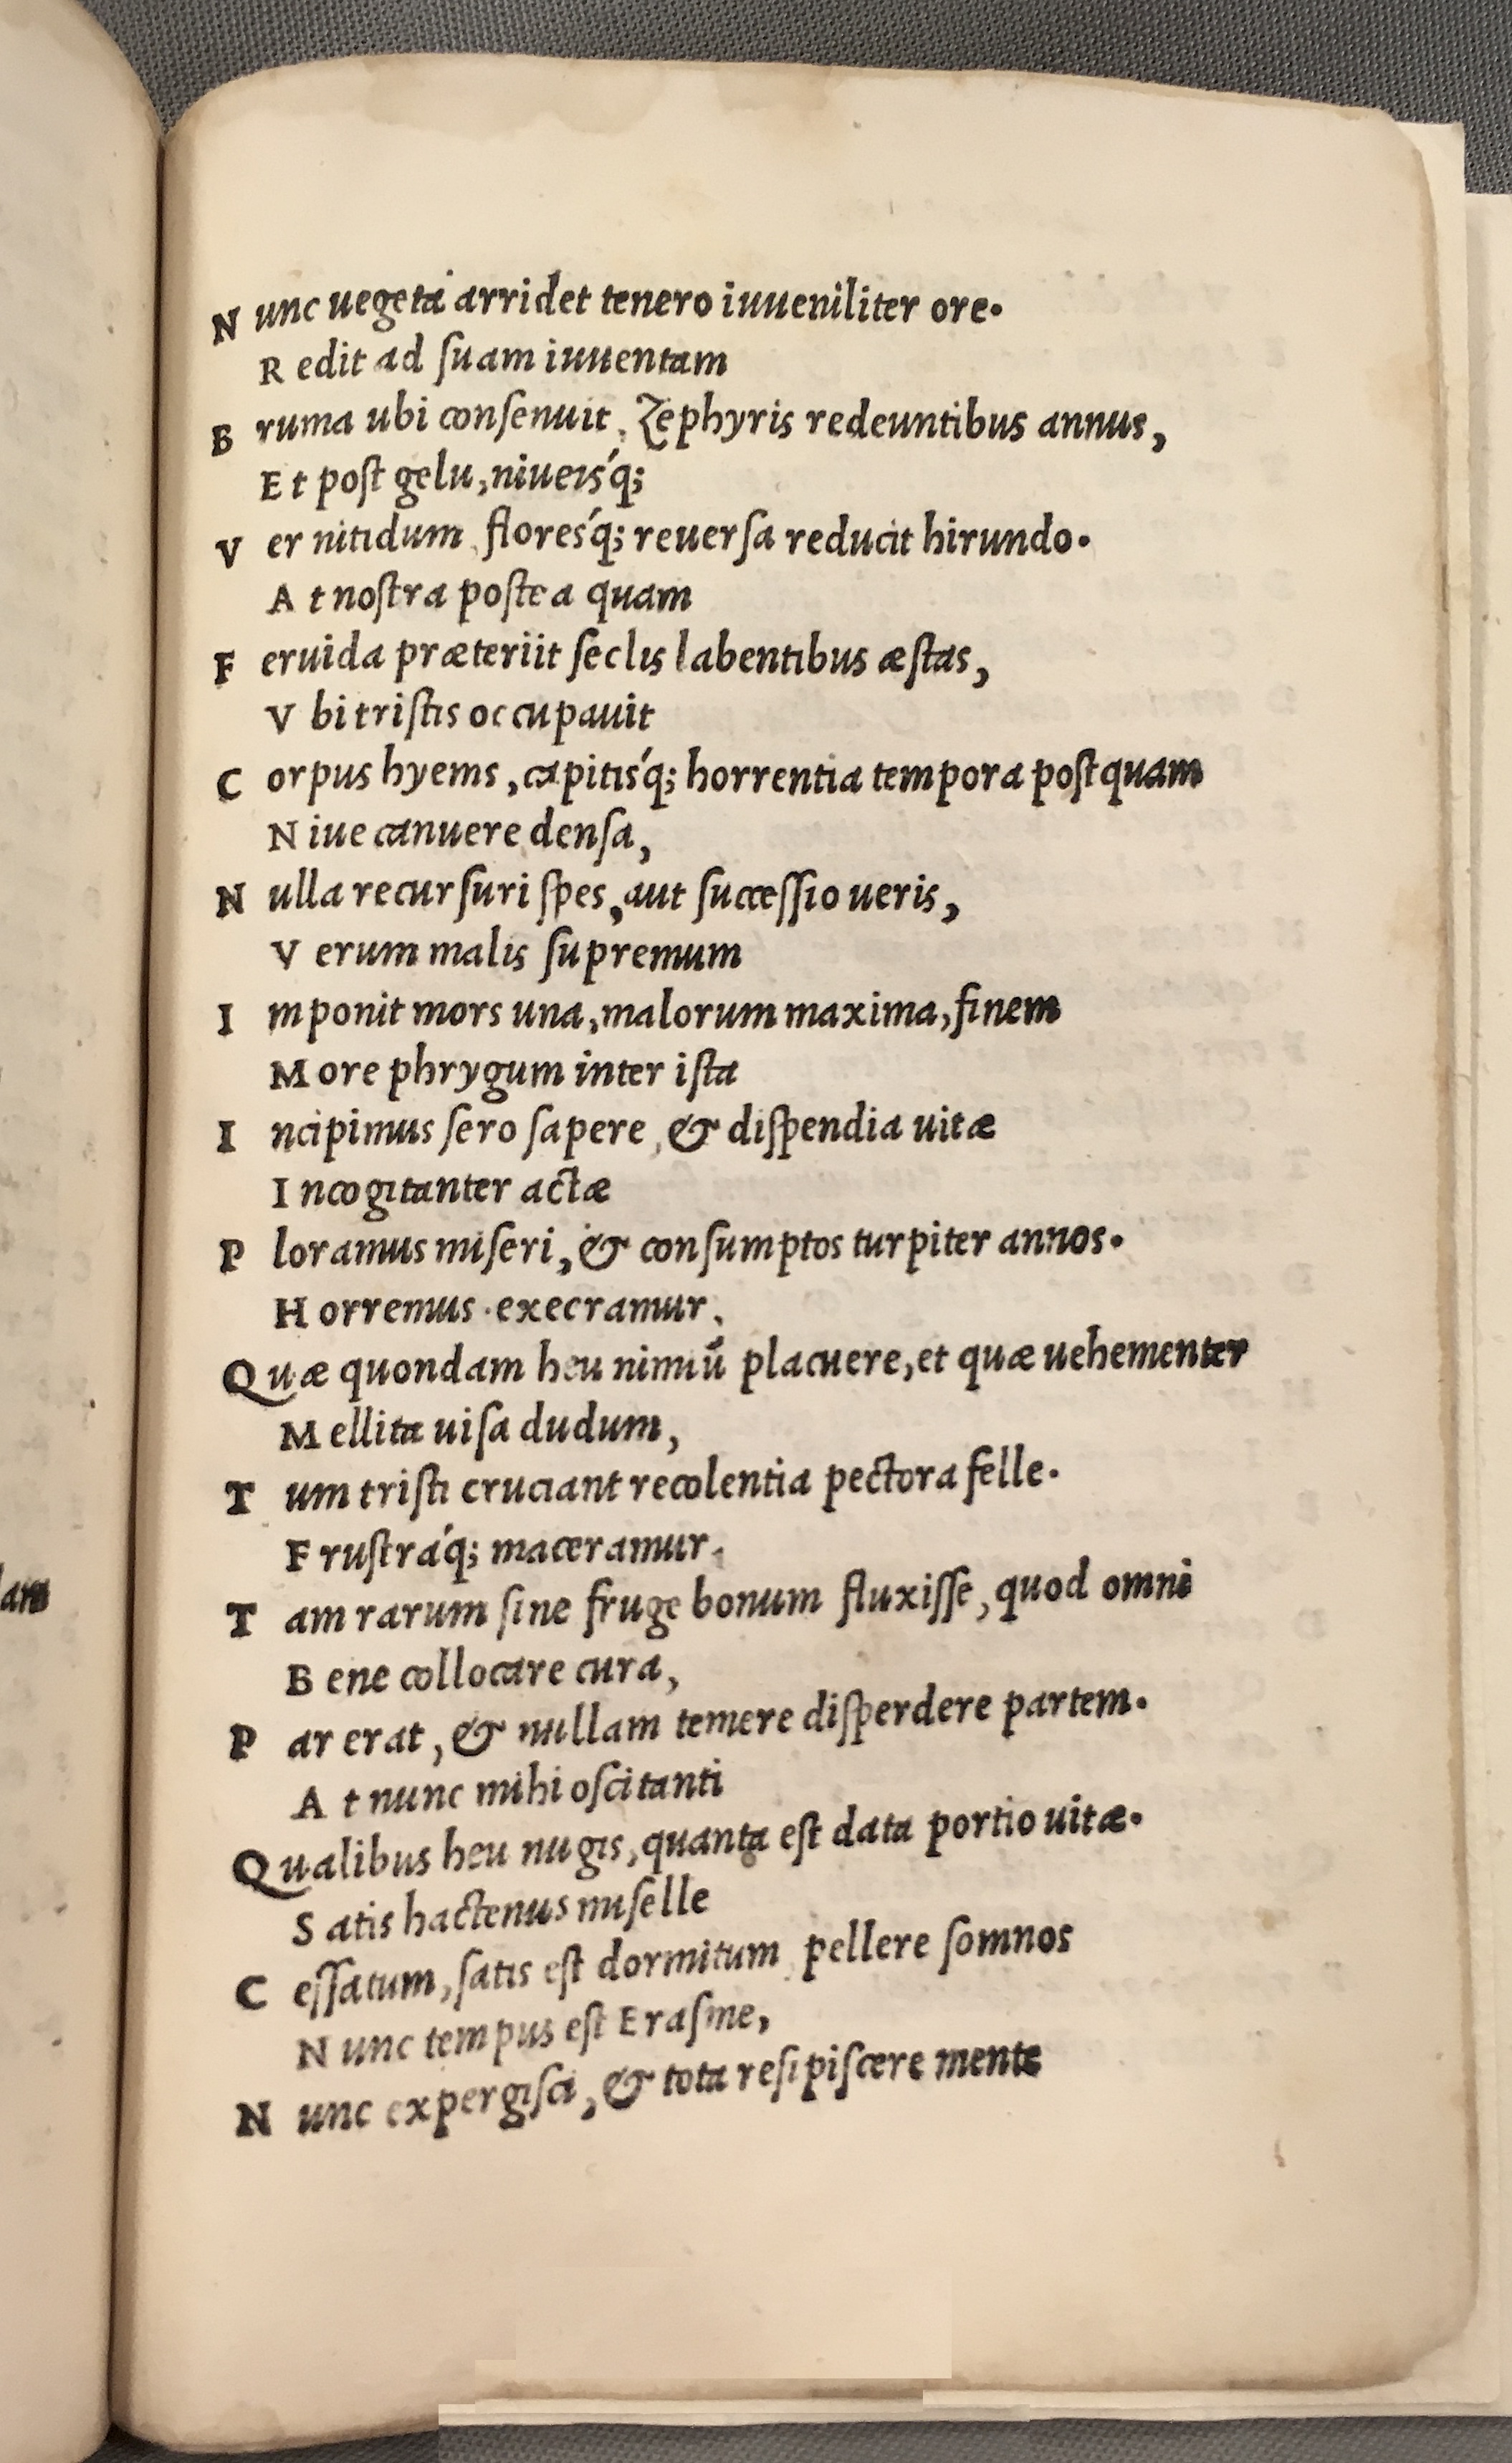 N unc uegeta arridet tenero iuueniliter ore.
R edit ad ſuam iuuentam
B ruma ubi conſenuit, Zephyris redeuntibus annus,
E t poſt gelu, niueis´q;
V er nitidum, flores´q; reuerſa reducit hirundo.
A t noſtra poſtea quam
F eruida præteriit ſeclis labentibus æſtas,
V bi triſtis occupauit
C orpus hyems, capitis´q; horrentia tempora poſtquam
N iue canuere denſa,
N ulla recurſuri ſpes, aut ſucceſſio ueris,
V erum malis ſupremum
I mponit mors una, malorum maxima, finem
M ore phrygum inter iſta
I ncipimus ſero ſapere, & diſpendia uitæ
I ncogitanter actæ
P loramus miſeri, & conſumptos turpiter annos.
H orremus. execramur,
Q uæ quondam heu nimiū placuere, et quæ uehementer
M ellita uiſa dudum,
T um triſti cruciant recolentia pectora felle.
F ruſtrá q; maceramur,
T am rarum ſine fruge bonum fluxiſſe, quod omni
B ene collocare cura,
P ar erat, & nullam temere diſperdere partem.
A t nunc mihi oſcitanti
Q ualibus heu nugis, quanta eſt data portio uitæ.
S atis hactenus miſelle
C eſſatum, ſatis eſt dormitum, pellere ſomnos
N unc tempus eſt Eraſme,
N unc expergiſci, & tota reſipiſcere mente